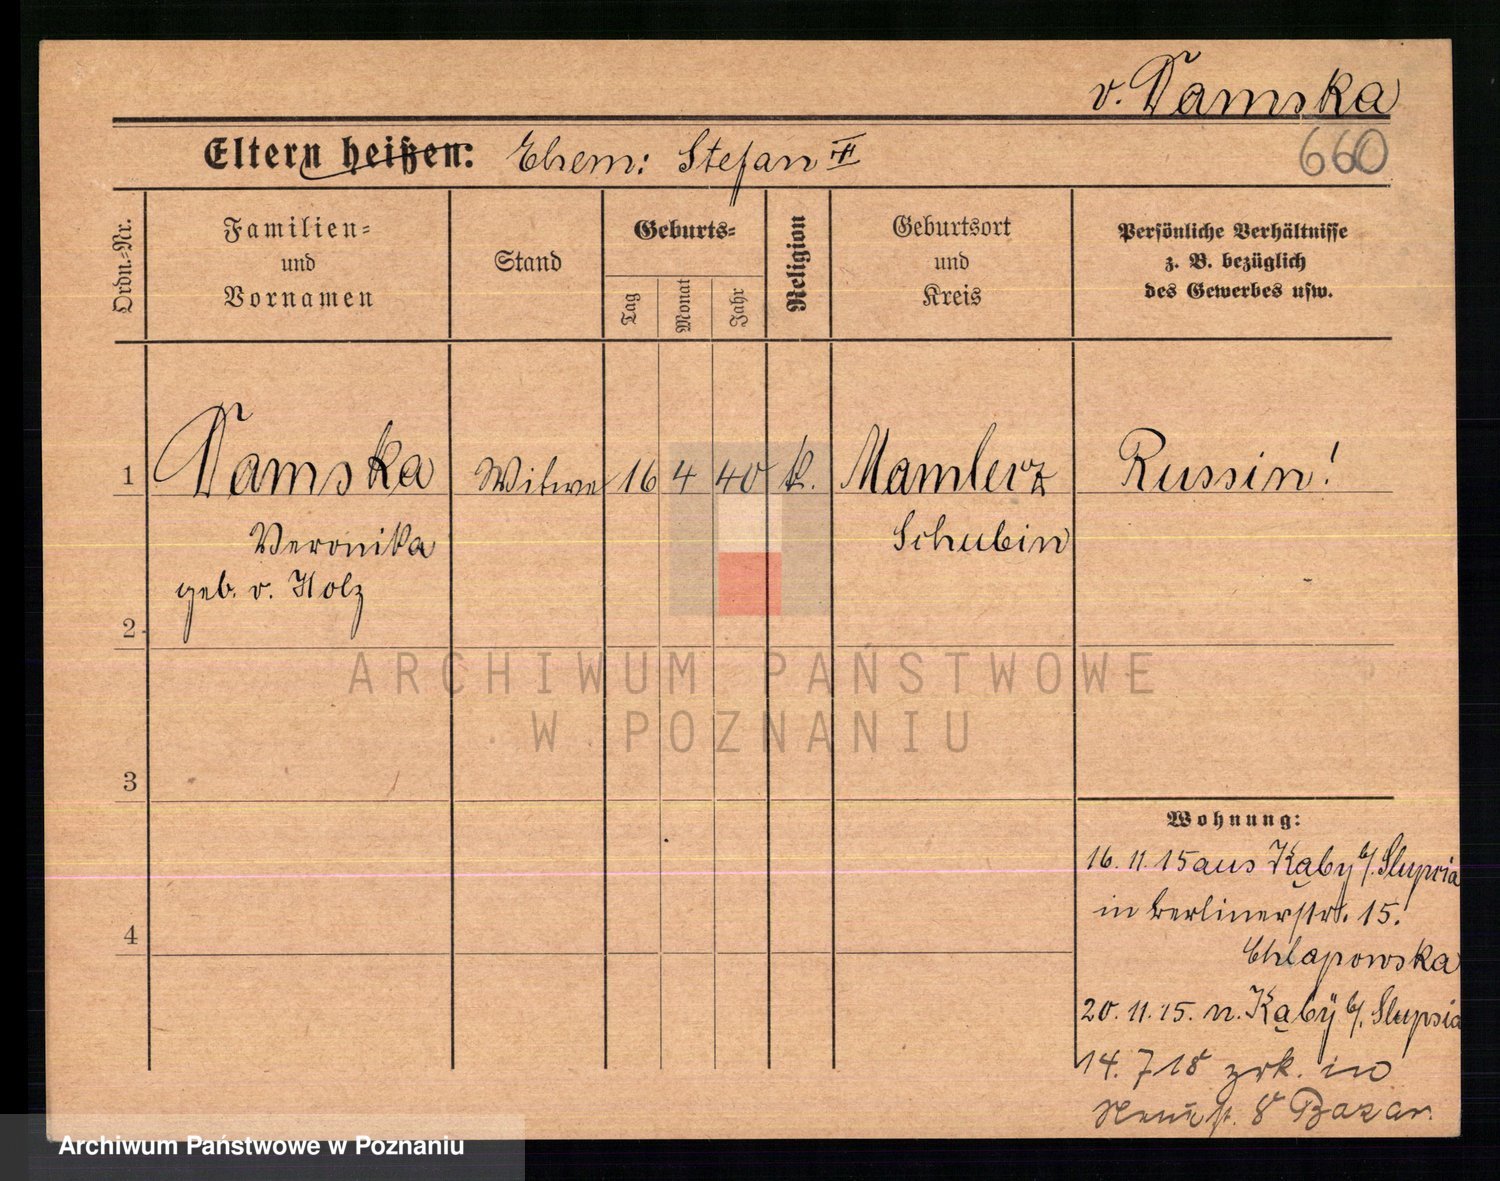 v. Tamska
660
Eltern heißen: Ehem: Stefan II
Ordn.-Nr.
Familien=
und
Vornamen
Stand
Geburts=
Tag
Monat
Jahr
Religion
Geburtsort
und
Kreis
Persönliche Verhältnisse
z. B. bezüglich
des Gewerbes usw.
1 Tamska Witwe 16 4 40 k. Mamlerz Russin!
Veronika Schubin
geb. v. Holz
2
3
4
ARCHIWUM PAŃSTWOWE
W POZNANIU
Wohnung:
16. 11. 15 aus Kąby b/. Slupcia
in Berlinerstr. 15.
Chlapowska
20. 11. 15. n. Kąby b/. Slupsia
14. 7 18 zrk. in
8 Bazar.
Archiwum Państwowe w Poznaniu